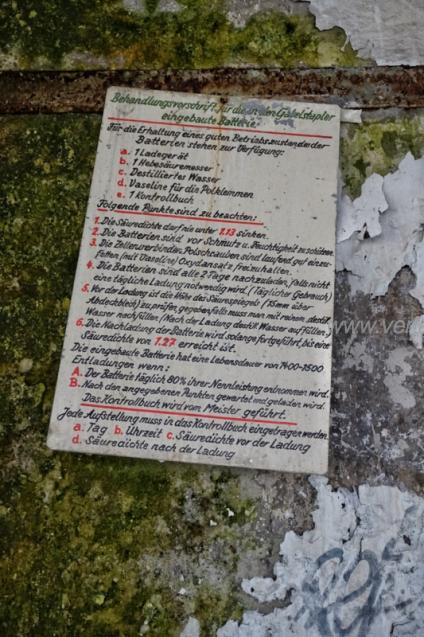 Behandlungsvorschrift für die in den Gabelstapler
eingebaute Batterie
Für die Erhaltung eines guten Betriebszustandes der
Batterien stehen zur Verfügung:
a. 1 Ladegerät
b. 1 Hebesäuremesser
c. Destilliertes Wasser
d. Vaseline für die Polklemmen
e. 1 Kontrollbuch
Folgende Punkte sind zu beachten:
1. Die Säuredichte darf nie unter 1.13 sinken.
2. Die Batterien sind vor Schmutz u. Feuchtigkeit zu schützen.
3. Die Zellenverbinder, Polschrauben sind laufend gut einzu-
fetten (mit Vaseline) Oxydansatz freizuhalten.
4. Die Batterien sind alle 2 Tage nachzuladen, falls nicht
eine tägliche Ladung notwendig wird. (Täglicher Gebrauch)
5. Vor der Ladung ist die Höhe des Säurespiegels (15mm über
Abdeckblech) zu prüfen, gegebenfalls muss man mit reinem, destill.
Wasser nachfüllen. (Nach der Ladung deshalb Wasser auffüllen)
6. Die Nachladung der Batterie wird solange fortgeführt, bis eine
Säuredichte von 1.27 erreicht ist.
Die eingebaute Batterie hat eine Lebensdauer von 1400-1500
Entladungen wenn:
A. Der Batterie täglich 80% ihrer Nennleistung entnommen wird.
B. Nach den angegebenen Punkten gewartet und geladen wird.
Das Kontrollbuch wird vom Meister geführt.
Jede Aufstellung muss in das Kontrollbuch eingetragen werden.
a. Tag b. Uhrzeit c. Säuredichte vor der Ladung
d. Säuredichte nach der Ladung
www.ver